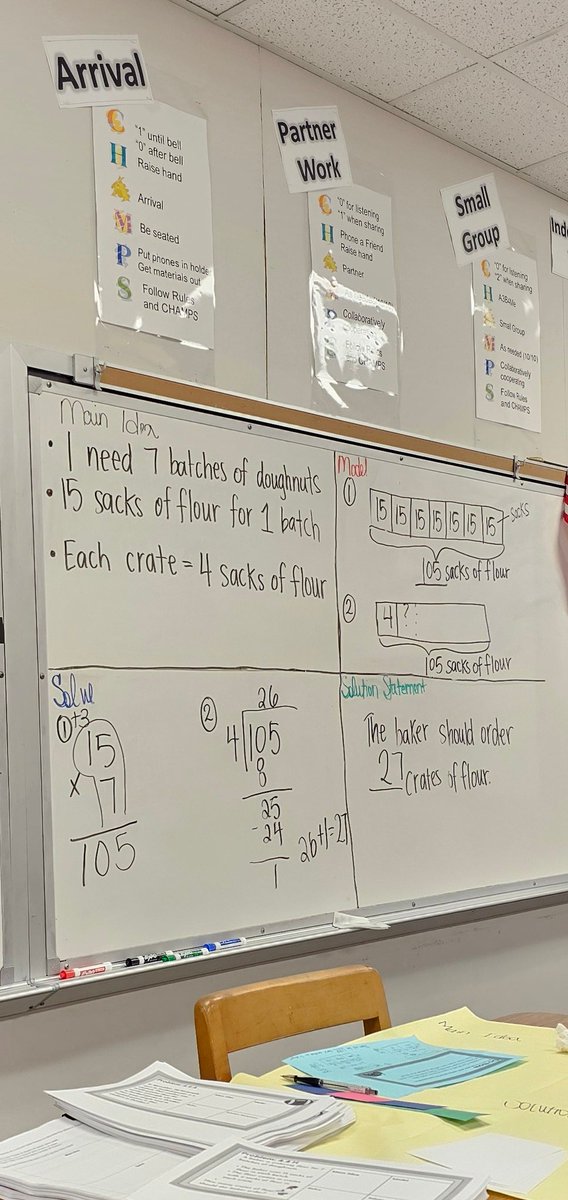 Arrival
C "1" until bell
"0" after bell
H Raise hand
A Arrival
M Be seated
P Put phones in holde
Get materials out
S Follow Rules
and CHAMPS
Partner
Work
C "0" for listening
"1" when sharing
H Phone a Friend
Raise hand
A Partner
Collaboratively
and CHAMPS
Small
Group
C "0" for listening
"2" when sharing
H A3B4Me
A Small Group
M As needed (10/10)
P Collaboratively
cooperating
S Follow Rules
and CHAMPS
Ind
Main Idea
• I need 7 batches of doughnuts
• 15 sacks of flour for 1 batch
• Each crate = 4 sacks of flour
Model
① 15 15 15 15 15 15 15 sacks
105 sacks of flour
② 4 ?
105 sacks of flour
Solve
① +3
15
x 7
105
② 26
4 105
8
25
-24
1
26+1=27
Solution Statement
The baker should order
27 crates of flour.
Main Idea